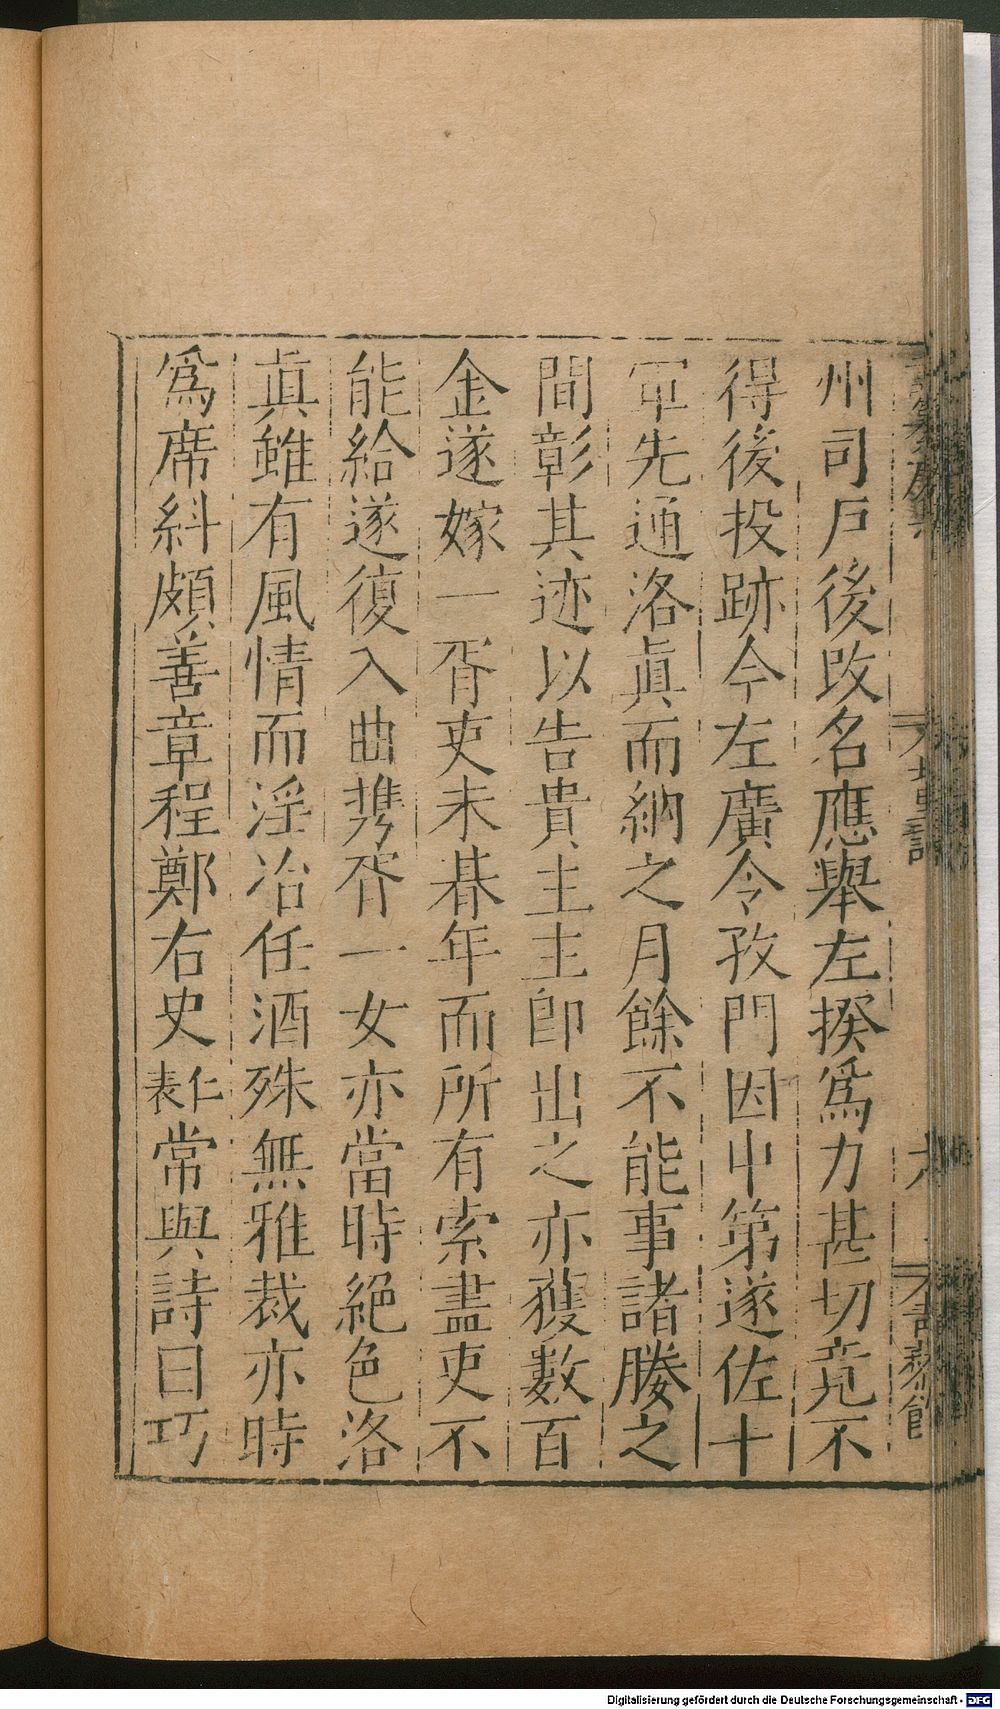 州司戸後改名應舉左揆爲力甚切竟不
得後投跡今左廣令孜門因中第遂佐十
軍先通洛眞而納之月餘不能事諸媵之
間彰其迹以告貴主主卽出之亦獲數百
金遂嫁一胥吏未朞年而所有索盡吏不
能給遂復入曲携胥一女亦當時絕色洛
眞雖有風情而淫冶任酒殊無雅裁亦時
爲席糾頗善章程鄭右史仁表常與詩曰巧
Digitalisierung gefördert durch die Deutsche Forschungsgemeinschaft - DFG